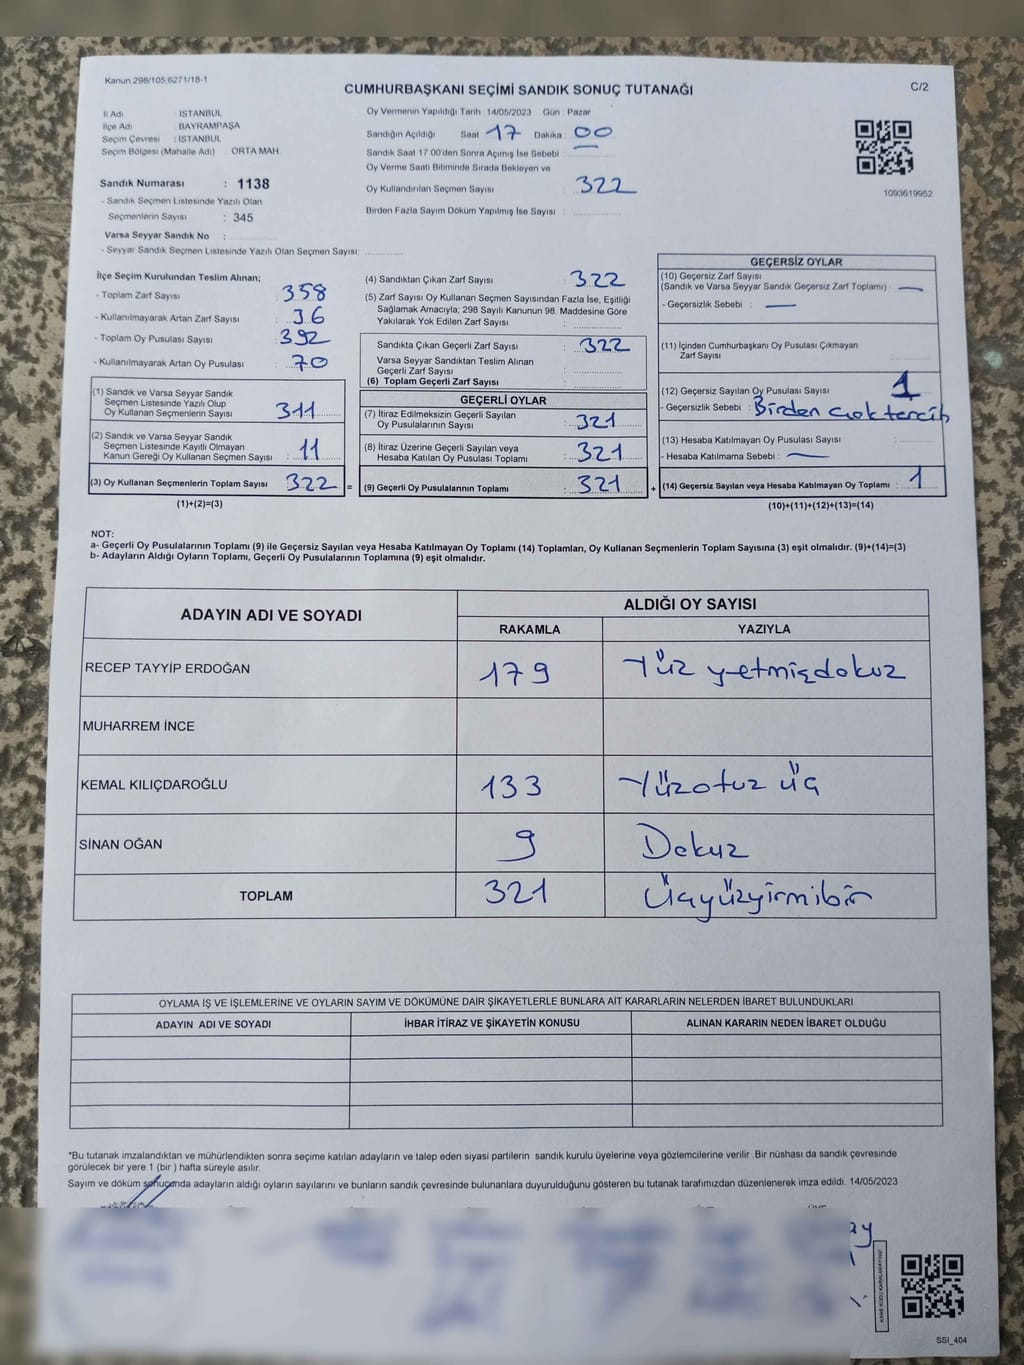 Kanun 298/105.6271/18-1
CUMHURBAŞKANI SEÇİMİ SANDIK SONUÇ TUTANAĞI
C/2
İl Adı : İSTANBUL
İlçe Adı : BAYRAMPAŞA
Seçim Çevresi : İSTANBUL
Seçim Bölgesi (Mahalle Adı) : ORTA MAH
Sandık Numarası : 1138
- Sandık Seçmen Listesinde Yazılı Olan
Seçmenlerin Sayısı : 345
Varsa Seyyar Sandık No :
- Seyyar Sandık Seçmen Listesinde Yazılı Olan Seçmen Sayısı:
Oy Vermenin Yapıldığı Tarih : 14/05/2023 Gün : Pazar
Sandığın Açıldığı Saat 17 Dakika : 00
Sandık Saat 17 00'den Sonra Açımış İse Sebebi :
Oy Verme Saati Bitiminde Sırada Bekleyen ve
Oy Kullandırılan Seçmen Sayısı : 322
Birden Fazla Sayım Döküm Yapılmış İse Sayısı :
1093619952
İlçe Seçim Kurulundan Teslim Alınan;
- Toplam Zarf Sayısı : 358
- Kullanılmayarak Artan Zarf Sayısı : 36
- Toplam Oy Pusulası Sayısı : 392
- Kullanılmayarak Artan Oy Pusulası : 70
(1) Sandık ve Varsa Seyyar Sandık
Seçmen Listesinde Yazılı Olup
Oy Kullanan Seçmenlerin Sayısı : 311
(2) Sandık ve Varsa Seyyar Sandık
Seçmen Listesinde Kayıtlı Olmayan
Kanun Gereği Oy Kullanan Seçmen Sayısı : 11
(3) Oy Kullanan Seçmenlerin Toplam Sayısı : 322 =
(1)+(2)=(3)
(4) Sandıktan Çıkan Zarf Sayısı : 322
(5) Zarf Sayısı Oy Kullanan Seçmen Sayısından Fazla İse, Eşitliği
Sağlamak Amacıyla; 298 Sayılı Kanunun 98. Maddesine Göre
Yakılarak Yok Edilen Zarf Sayısı :
Sandıkta Çıkan Geçerli Zarf Sayısı : 322
Varsa Seyyar Sandıktan Teslim Alınan
Geçerli Zarf Sayısı :
(6) Toplam Geçerli Zarf Sayısı :
GEÇERLİ OYLAR
(7) İtiraz Edilmeksizin Geçerli Sayılan
Oy Pusulalarının Sayısı : 321
(8) İtiraz Üzerine Geçerli Sayılan veya
Hesaba Katılan Oy Pusulası Toplamı : 321
(9) Geçerli Oy Pusulalarının Toplamı : 321 +
GEÇERSİZ OYLAR
(10) Geçersiz Zarf Sayısı
(Sandık ve Varsa Seyyar Sandık Geçersiz Zarf Toplamı) : —
- Geçersizlik Sebebi : —
(11) İçinden Cumhurbaşkanı Oy Pusulası Çıkmayan
Zarf Sayısı :
(12) Geçersiz Sayılan Oy Pusulası Sayısı : 1
- Geçersizlik Sebebi : Birden çok tercih
(13) Hesaba Katılmayan Oy Pusulası Sayısı :
- Hesaba Katılmama Sebebi : —
(14) Geçersiz Sayılan veya Hesaba Katılmayan Oy Toplamı : 1
(10)+(11)+(12)+(13)=(14)
NOT:
a- Geçerli Oy Pusulalarının Toplamı (9) ile Geçersiz Sayılan veya Hesaba Katılmayan Oy Toplamı (14) Toplamları, Oy Kullanan Seçmenlerin Toplam Sayısına (3) eşit olmalıdır. (9)+(14)=(3)
b- Adayların Aldığı Oyların Toplamı, Geçerli Oy Pusulalarının Toplamına (9) eşit olmalıdır.
ADAYIN ADI VE SOYADI
ALDIĞI OY SAYISI
RAKAMLA YAZIYLA
RECEP TAYYİP ERDOĞAN 179 Yüz yetmişdokuz
MUHARREM İNCE
KEMAL KILIÇDAROĞLU 133 Yüzotuz üç
SİNAN OĞAN 9 Dokuz
TOPLAM 321 Üçyüzyirmibir
OYLAMA İŞ VE İŞLEMLERİNE VE OYLARIN SAYIM VE DÖKÜMÜNE DAİR ŞİKAYETLERLE BUNLARA AİT KARARLARIN NELERDEN İBARET BULUNDUKLARI
ADAYIN ADI VE SOYADI İHBAR İTİRAZ VE ŞİKAYETİN KONUSU ALINAN KARARIN NEDEN İBARET OLDUĞU
*Bu tutanak imzalandıktan ve mühürlendikten sonra seçime katılan adayların ve talep eden siyasi partilerin sandık kurulu üyelerine veya gözlemcilerine verilir. Bir nüshası da sandık çevresinde
görülecek bir yere 1 (bir ) hafta süreyle asılır.
Sayım ve döküm sonucunda adayların aldığı oyların sayılarını ve bunların sandık çevresinde bulunanlara duyurulduğunu gösteren bu tutanak tarafımızdan düzenlenerek imza edildi. 14/05/2023
SSI_404